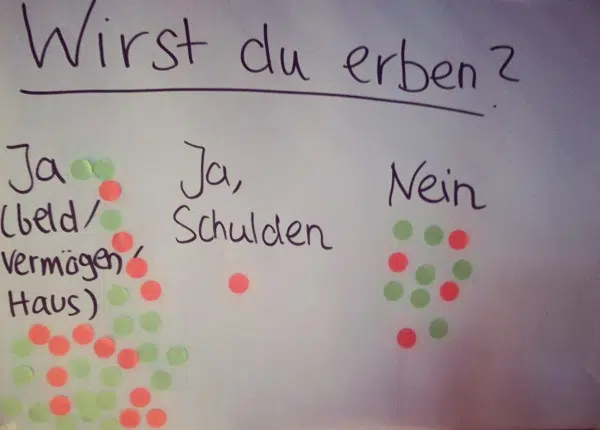 Wirst du erben?
Ja
(Geld/
Vermögen/
Haus)
Ja,
Schulden
Nein